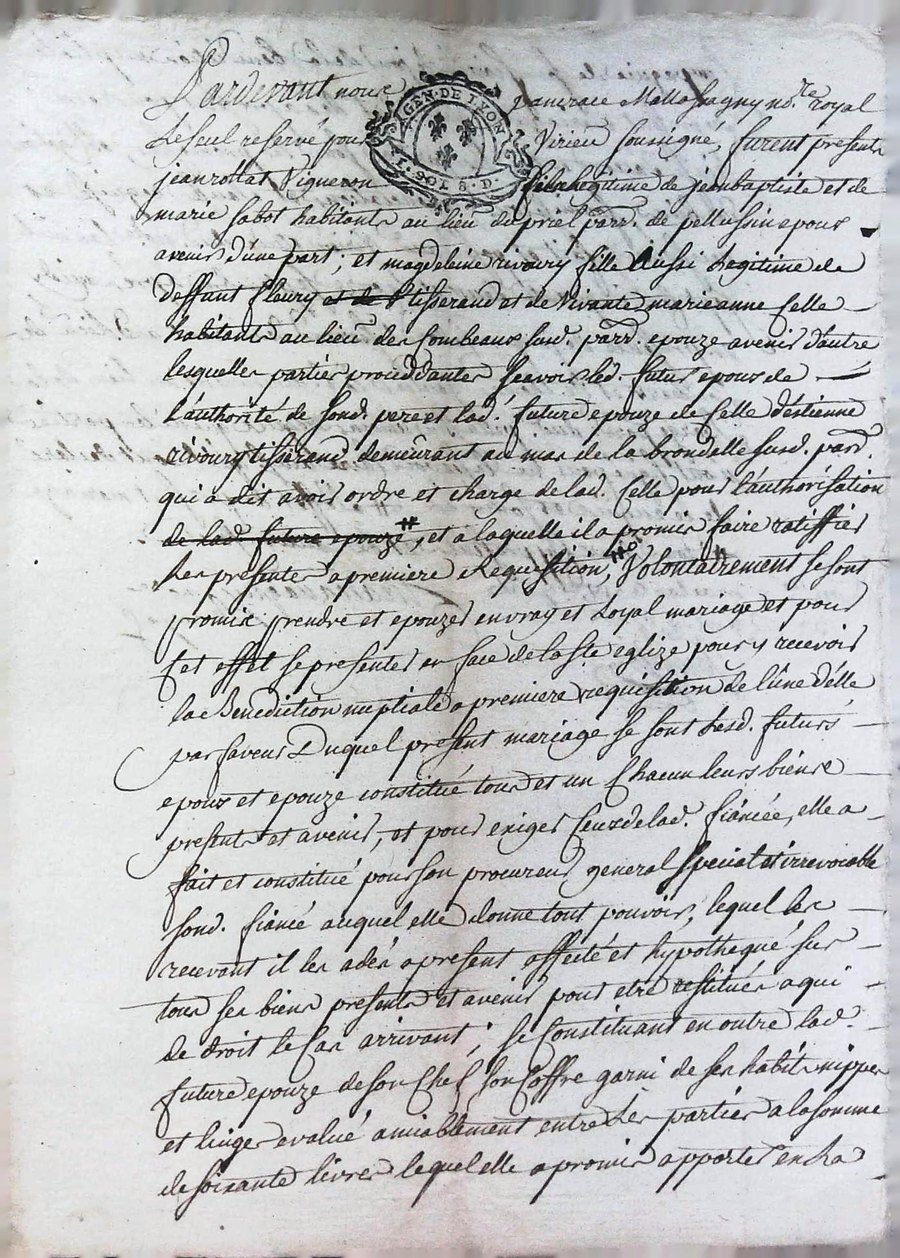 Pardevant nous pancrace Mallassagny no.re royal
Le seul reservé pour Virieu soussigné, furent presents
GEN. DE LYON
1. SOL 8. D.
jean rollat Vigneron fils legitime de jean baptiste et de
marie sabot habitants au lieu du priel parr. de pellussin epoux
avenir d'une part; et magdeleine rivoury fille Aussi Legitime de
deffunt fleury et de tisserand et de Vivante marieanne Celle
habitante au lieu des Combeaux sud. parr. epouze avenir d'autre
lesquelles parties proceddantes sçavoir led. futur epoux de
L'authorité de sond. pere et lad. future epouze de Celle d'étienne
rivoury tisserand demeurant au mas de la brondelle susd. parr.
qui a dit avoir ordre et charge de lad. Celle pour L'authorisation
de lad. future epouze #, et a laquelle il a promis faire ratiffier
Les presentes a premiere Requisition, Volontairement se sont
promis prendre et epouzer en vray et Loyal mariage et pour
Cet effet se presenter en face de la ste eglize pour y recevoir
la Benediction nuptiale a premiere requisition de l'une d'elle
par faveur Duquel present mariage se sont Lesd. futurs
epoux et epouze constitué tous et un Chacun leurs biens
presents et avenir, et pour exiger Ceux de lad. fiancée, elle a
fait et constitué pour son procureur general special et irrevocable
sond. fiancé auquel elle donne tout pouvoir, lequel les
recevant il les a dès a present affecté et hypothequé sur
tous ses biens presents et avenir pour etre restitués a qui
de droit le Cas arrivant; se Constituant en outre lad.
future epouze de son Chef son Coffre garni de ses habits nippes
et linges evalué amiablement entre Les parties a la somme
de soixante livres lequel elle a promis apporter en La